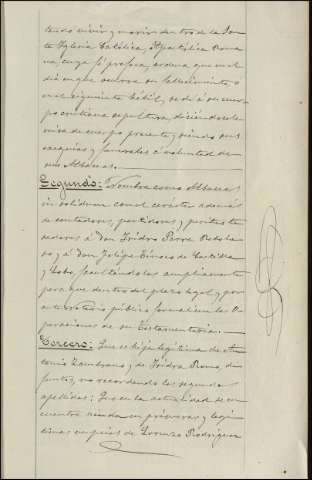 tando vivir y morir dentro de la San-
ta Iglesia Católica, Apostólica Roma-
na, cuya fé profesa, ordena que en el
dia en que ocurra su fallecimiento, o
en el siguiente hábil, se dé á su cuer-
po cristiana sepultura, diciéndosele
misa de cuerpo presente y siendo sus
exequias y funerales á voluntad de
sus Albaceas.
Segundo: Nombra como Albaceas
in solidum con el carácter además
de contadores, partidores y peritos ta-
sadores á Don Isidro Parra
y á Don Felipe de Castilla
y facultándoles ampliamente
para que dentro del plazo legal y por
ante Notario público formalicen las o-
peraciones de su Testamentaria.
Tercero: Que es hija legítima de An-
tonio Zambrano y de Isidra Roma, di-
funtos, no recordando los segundos
apellidos; que en la actualidad se en-
cuentra casada en primeras y legí-
timas nupcias de Lorenzo Rodriguez